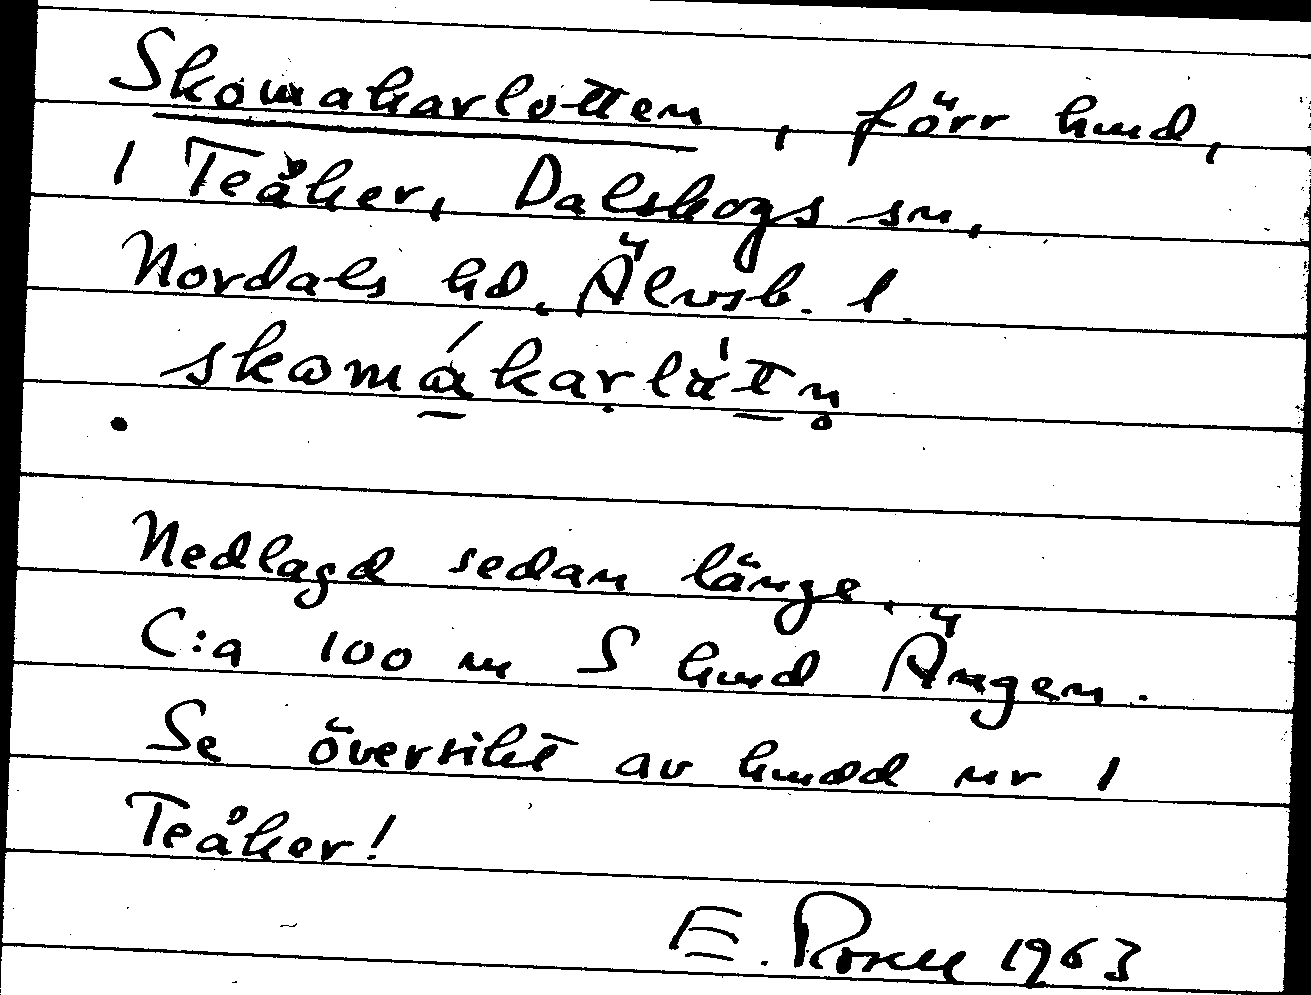 Skomakarlotten, förr hmd,
1 Teåker, Dalskogs sn,
Nordals hd, Älvsb. l.
skomákarlåtn̥
Nedlagd sedan länge.
C:a 100 m S hmd Ängen.
Se översikt av hmdd nr 1
Teåker!
E. Rosell 1963